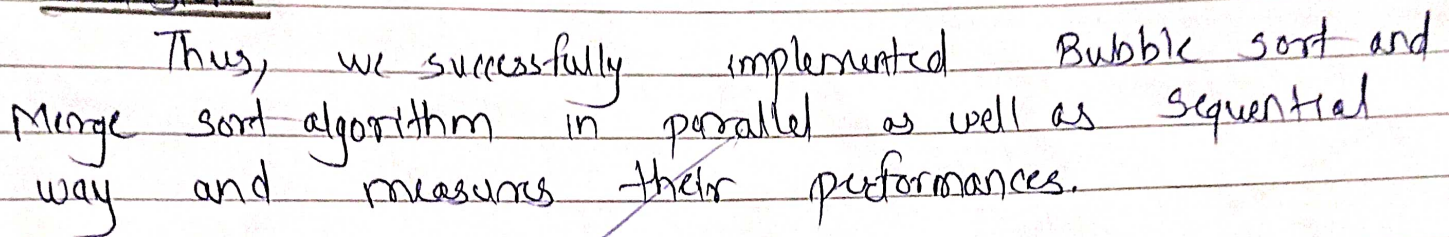 Thus, we successfully implemented Bubble sort and
Merge sort algorithm in parallel as well as sequential
way and measures their performances.